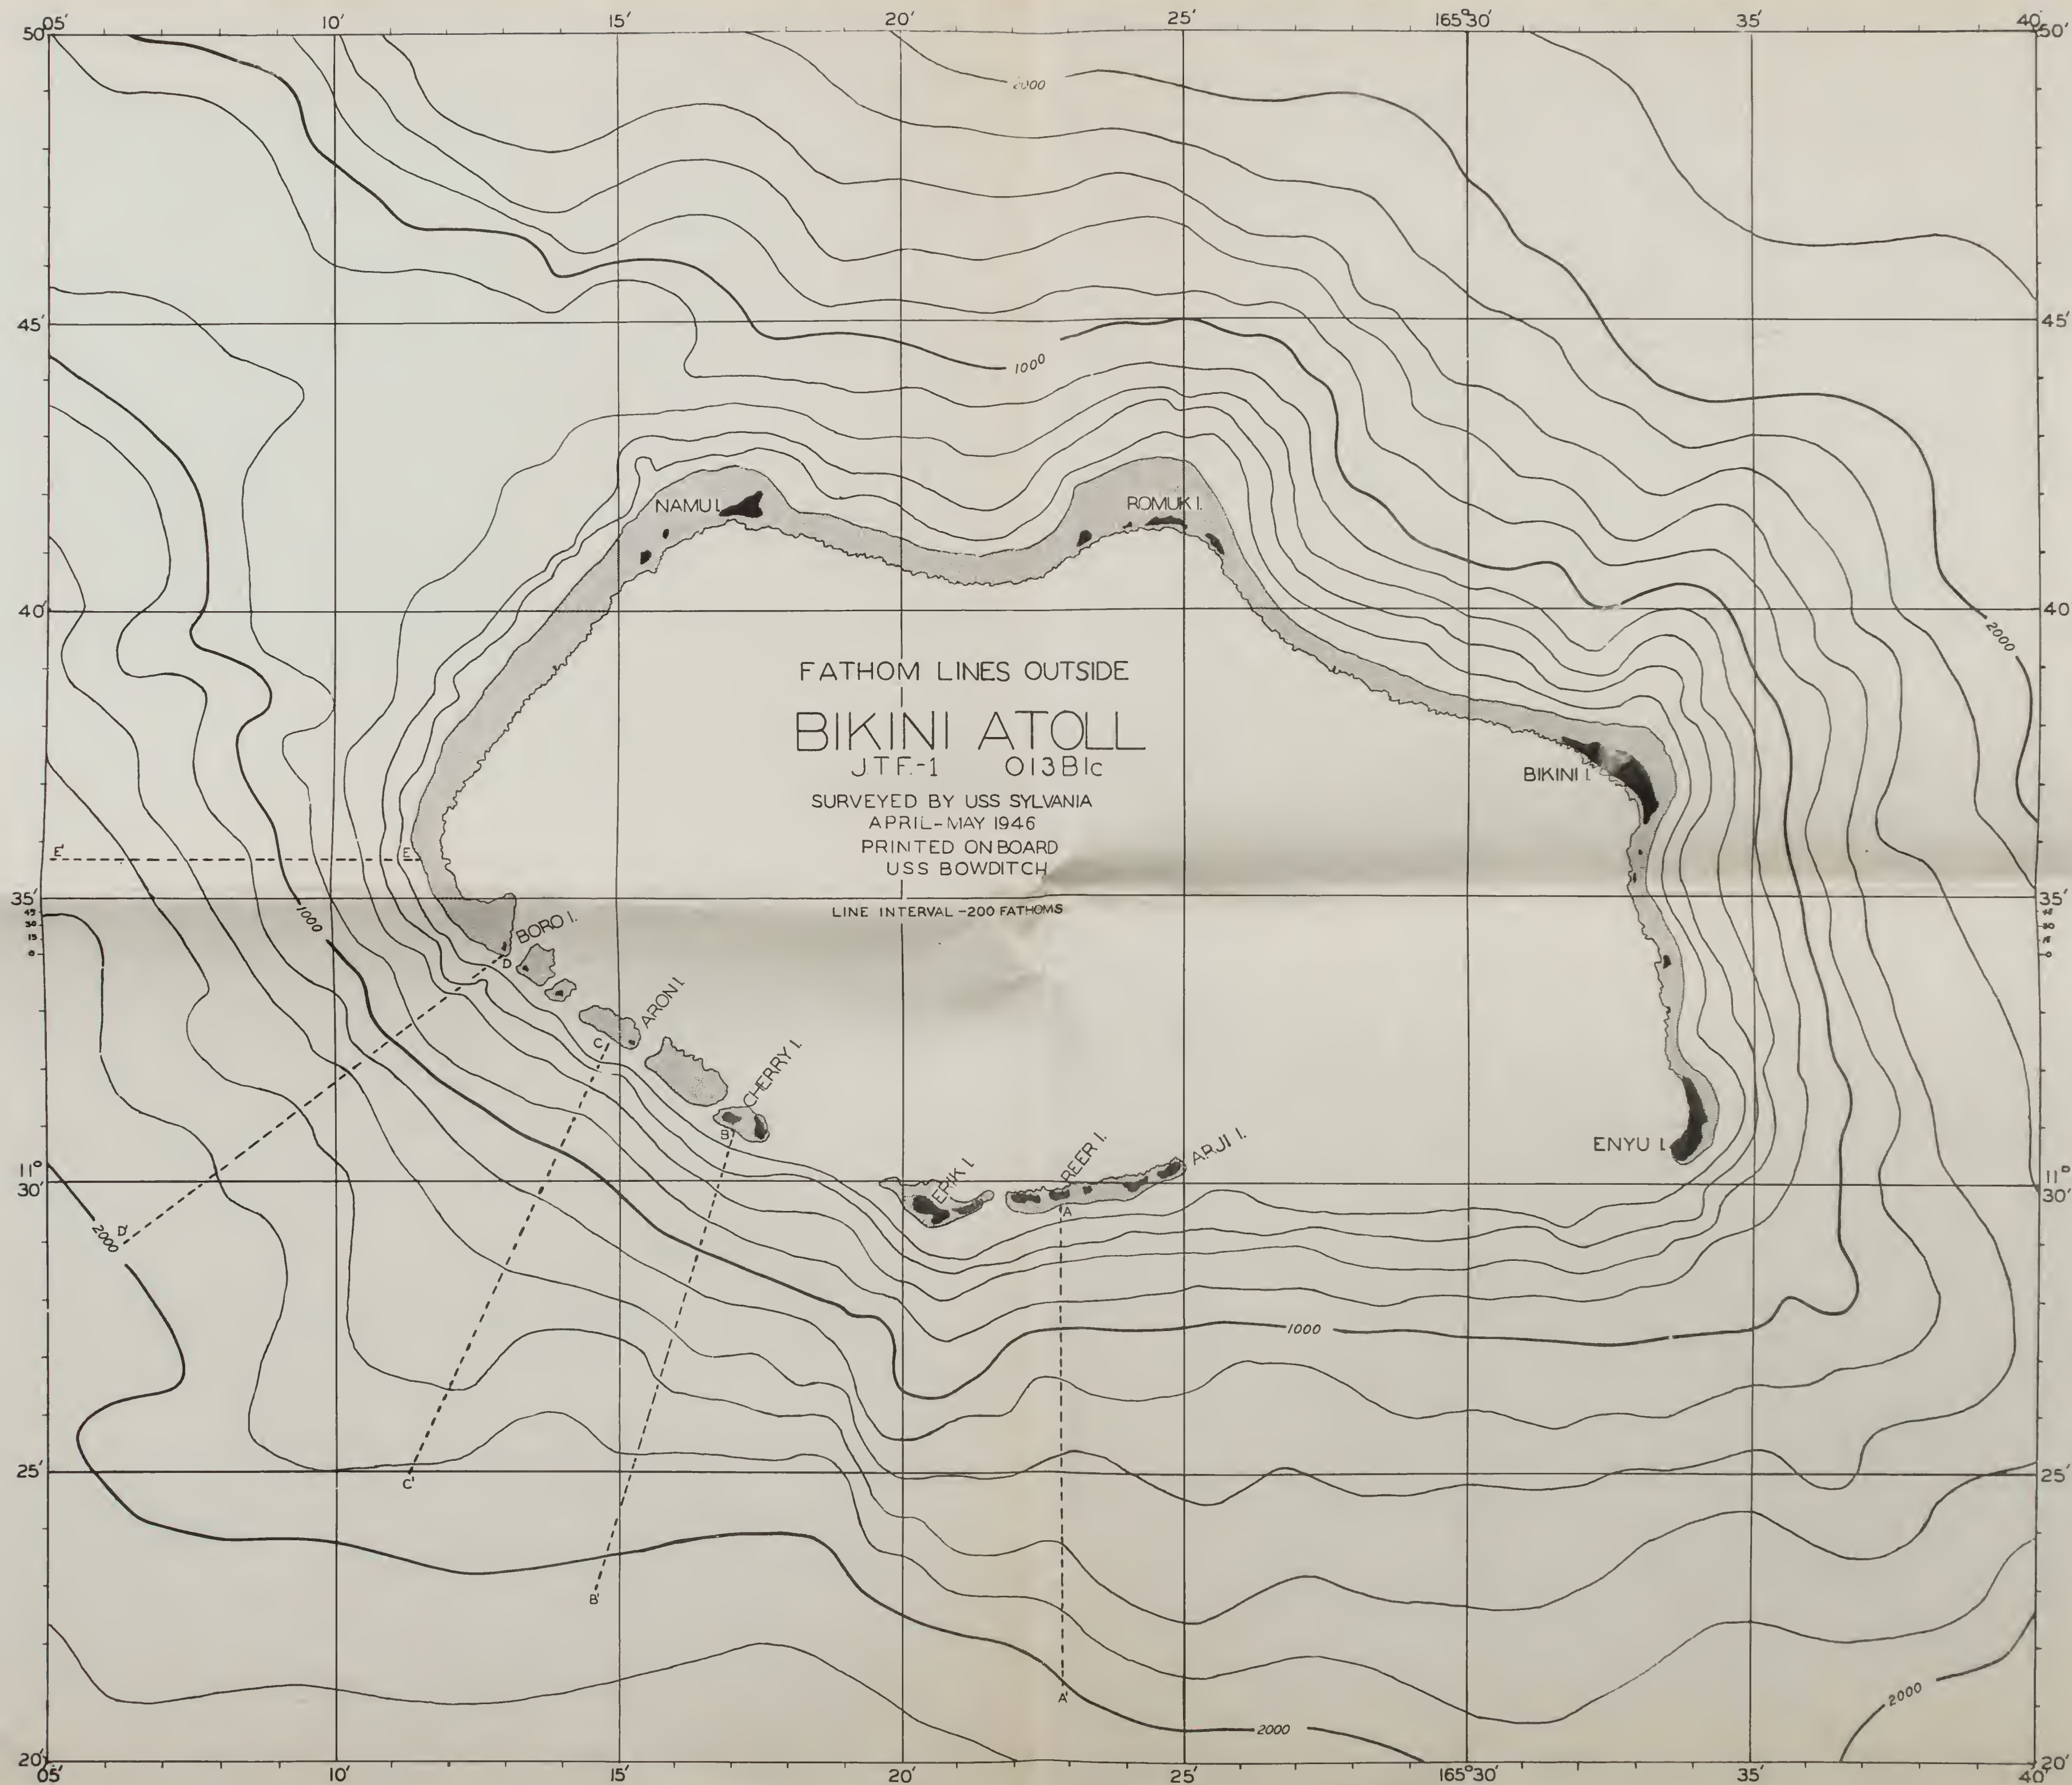 05′ 10′ 15′ 20′ 25′ 165°30′ 35′ 40′
50′ 50′
2000
45′ 45′
1000
NAMU I.
ROMUK I.
40′ 40′
2000
FATHOM LINES OUTSIDE
BIKINI ATOLL
JTF.-1 013B1c
BIKINI I.
SURVEYED BY USS SYLVANIA
APRIL-MAY 1946
PRINTED ON BOARD
USS BOWDITCH
E′ E
35′ 35′
LINE INTERVAL -200 FATHOMS
45
30
15
0
1000
BORO I.
D
ARON I.
C
CHERRY I.
B
ENYU I.
ERIK I.
REER I.
ARJI I.
A
11°
30′
11°
30′
2000
D′
1000
25′ 25′
C′
B′
A′
2000
2000
20′ 20′
05′ 10′ 15′ 20′ 25′ 165°30′ 35′ 40′